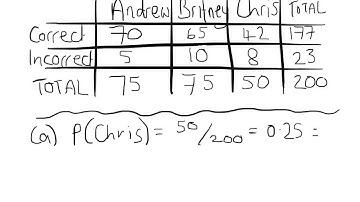 Andrew Britney Chris TOTAL
Correct 70 65 42 177
Incorrect 5 10 8 23
TOTAL 75 75 50 200
(a) P(Chris) = 50/200 = 0.25 =